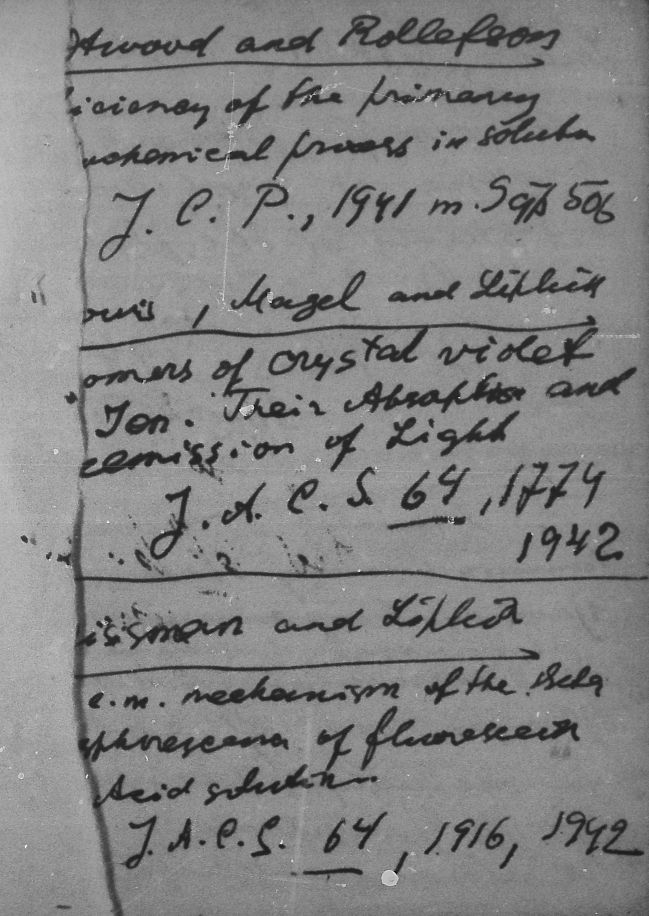 Atwood and Rollefson
iciency of the primary
ochemical process in solution
J. C. P., 1941 506
ouis, Magel and Lipkin
omers of Crystal violet
Ion. Their Absorption and
reemission of Light
J. A. C. S. 64, 1774
1942
issman and Lipkin
e.m. mechanism of the Beta
sphorescence of fluorescein
Acid solution
J. A. C. S. 64, 1916, 1942